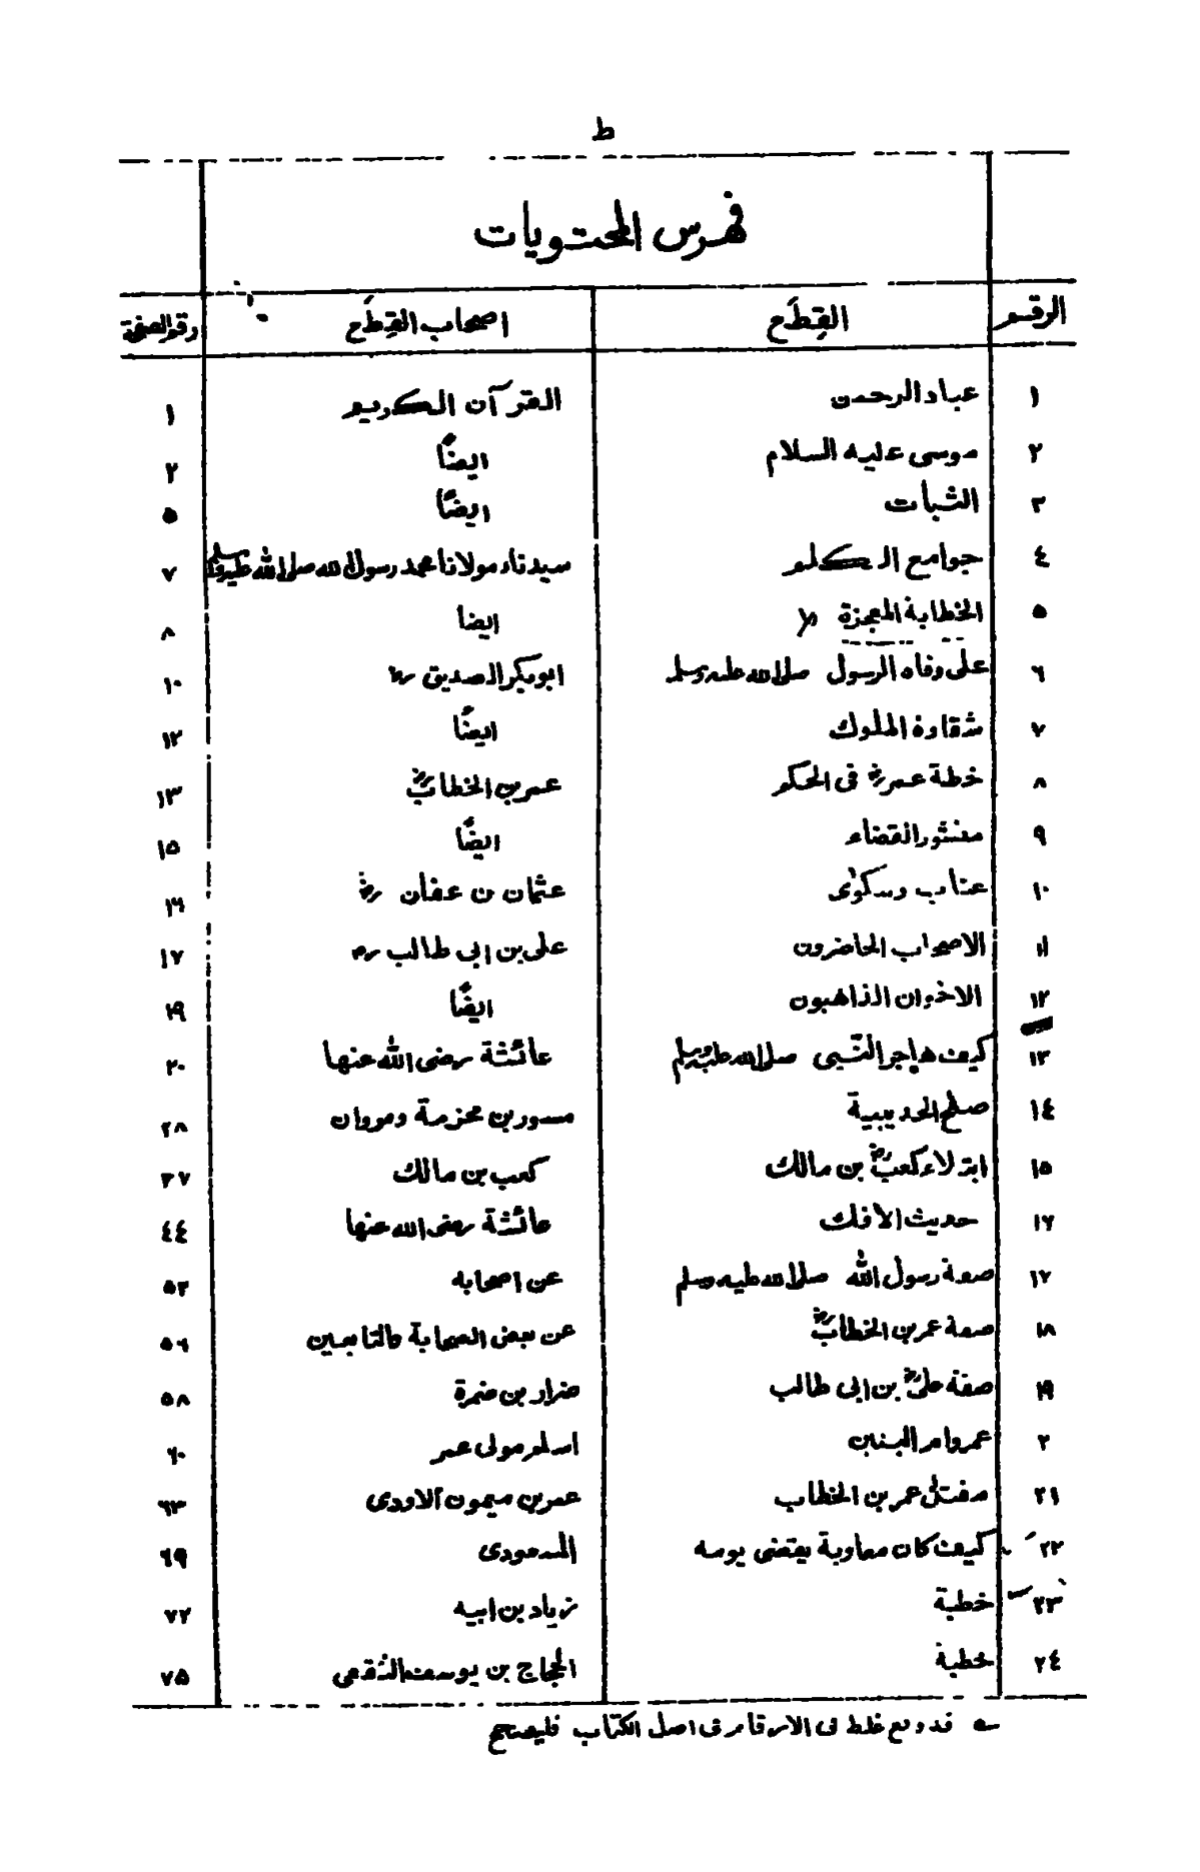 ط
فهرس المحتويات
الرقم القِطَع اصحاب القِطَع رقم الصفحة
١ عباد الرحمن القرآن الكريم ١
٢ موسى عليه السلام ايضًا ٢
٣ الثبات ايضًا ٥
٤ جوامع الكلم سيدنا ومولانا محمد رسول الله صلى الله عليه وسلم ٧
٥ الخطابة المعجزة ايضا ٨
٦ على وفاه الرسول صلى الله عليه وسلم ابوبكر الصديق رض ١٠
٧ شقاوة الملوك ايضًا ١٢
٨ خطة عمر رض فى الحكم عمر بن الخطاب رض ١٣
٩ منشور القضاء ايضًا ١٥
١٠ عتاب وشكوى عثمان بن عفان رض ١٦
١١ الاصحاب الحاضرون على بن ابى طالب رض ١٧
١٢ الاخوان الذاهبون ايضًا ١٩
١٣ كيف هاجر النّبى صلى الله عليه وسلم عائشة رضى الله عنها ٢٠
١٤ صلح الحديبية مسور بن مخزمة ومروان ٢٨
١٥ ابتلاء كعب رض بن مالك كعب بن مالك ٣٧
١٦ حديث الافك عائشة رضى الله عنها ٤٤
١٧ صفة رسول الله صلى الله عليه وسلم عن اصحابه ٥٣
١٨ صفة عمر بن الخطاب رض عن بعض الصحابة والتابعين ٥٦
١٩ صفة على رض بن ابى طالب ضرار بن ضمرة ٥٨
٢ عمر وام البنين اسلم مولى عمر ٦٠
٢١ مقتل عمر بن الخطاب عمرو بن ميمون الاودى ٦٣
٢٢ كيف كان معاوية يقضى يومه المسعودى ٦٩
٢٣ خطبة زياد بن ابيه ٧٢
٢٤ خطبة الحجاج بن يوسف الثقفى ٧٥
قد وقع غلط فى الارقام فى اصل الكتاب فليصحح